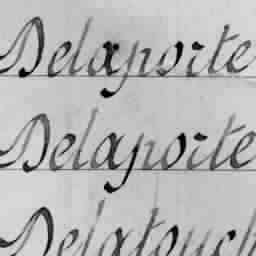 Delaporte
Delaporte
Delatouch